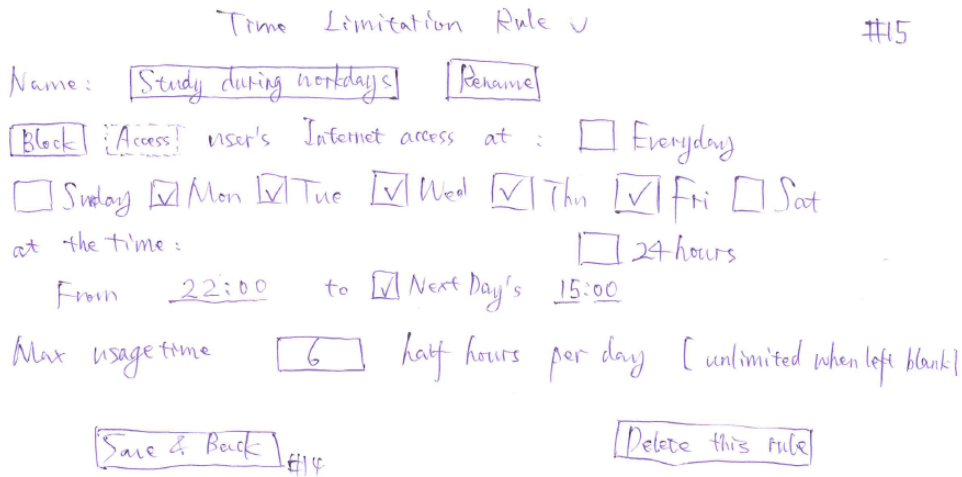 Time Limitation Rule v #15
Name: Study during workdays Rename
Block Access user's Internet access at: Everyday
Sunday Mon Tue Wed Thu Fri Sat
at the time: 24 hours
From 22:00 to Next Day's 15:00
Max usage time 6 half hours per day [unlimited when left blank]
Save & Back #14 Delete this rule